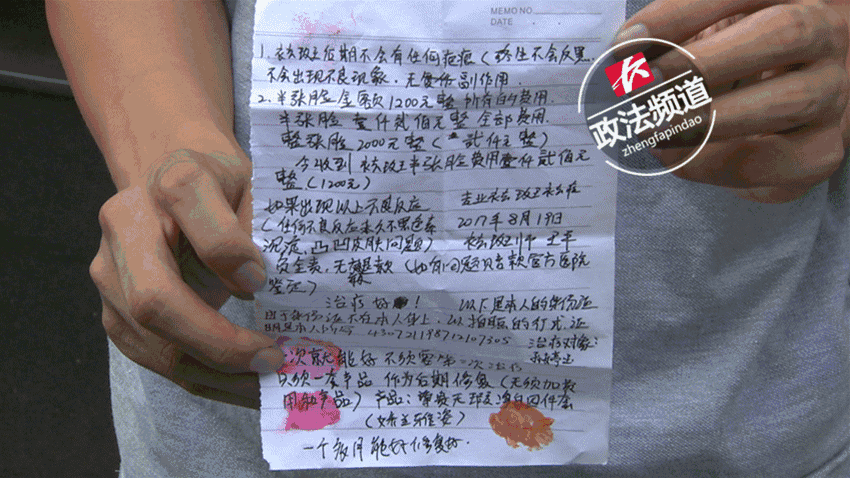 MEMO NO.
DATE
政法频道
zhengfapindao
1. 祛斑后期不会有任何疤痕（终生不会反黑
不会出现不良现象，无任何副作用
2. 半张脸全额1200元整 所有的费用
半张脸 壹仟贰佰元整 全部费用
整张脸 2000元整（贰仟元整）
今收到 祛斑半张脸费用壹仟贰佰元
整（1200元）
如果出现以上不良反应
2017年8月19日
（任何不良反应永久不黑色素
沉症、凸凹皮肤问题）
祛斑师
负全责，无 退款（如有问题 官方医院
鉴定）
治疗好！
以下是本人的身份证
由于身份证不在本人身上，以拍照的行式证
明是本人
治疗对象：
一次就能好 不须要第二次治疗
只须一套产品 作为后期修复（无须加教
用和产品）产品： 无瑕净白四件套
一个教月能好修复好.